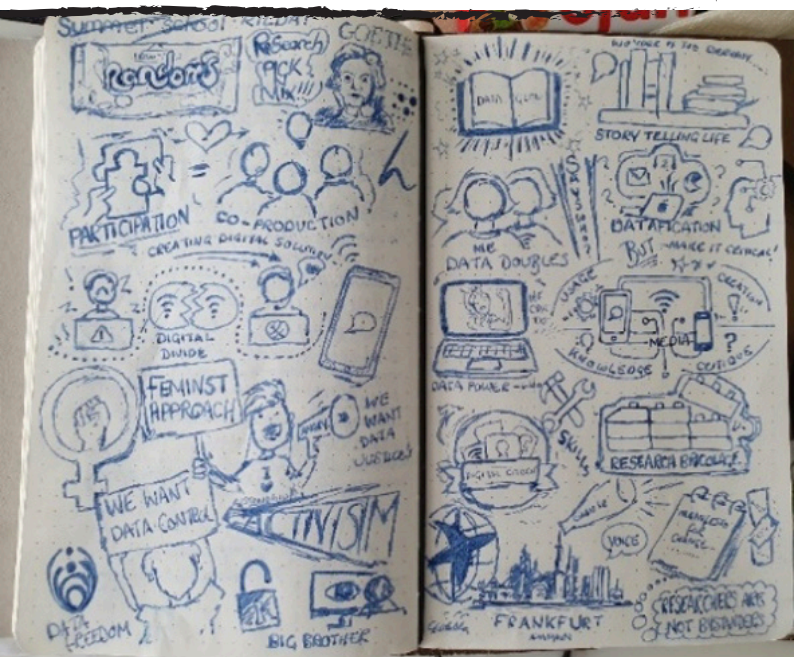 Summer School
GOETHE
ReSearch
PICK &
MIX!!!
Randoms
=
PARTICIPATION
CO-PRODUCTION
CREATING DIGITAL SOLUTION
DIGITAL
DIVIDE
FEMINST
APPROACH
WE
WANT
DATA
WE WANT
DATA CONTROL
ACTIVISIM
DATA
FREEDOM
BIG BROTHER
DATA
STORY TELLING LIFE
ME
DATA DOUBLES
DATAFICATION
BUT MAKE IT CRITICAL!
USAGE
CREATION
MEDIA
KNOWLEDGE
CRITIQUE
DATA POWER
SKILLS
RESEARCH
VOICE
MANIFESTO
FOR
CHANGE
FRANKFURT
RESEARCHERS ARE
NOT BISTANDERS